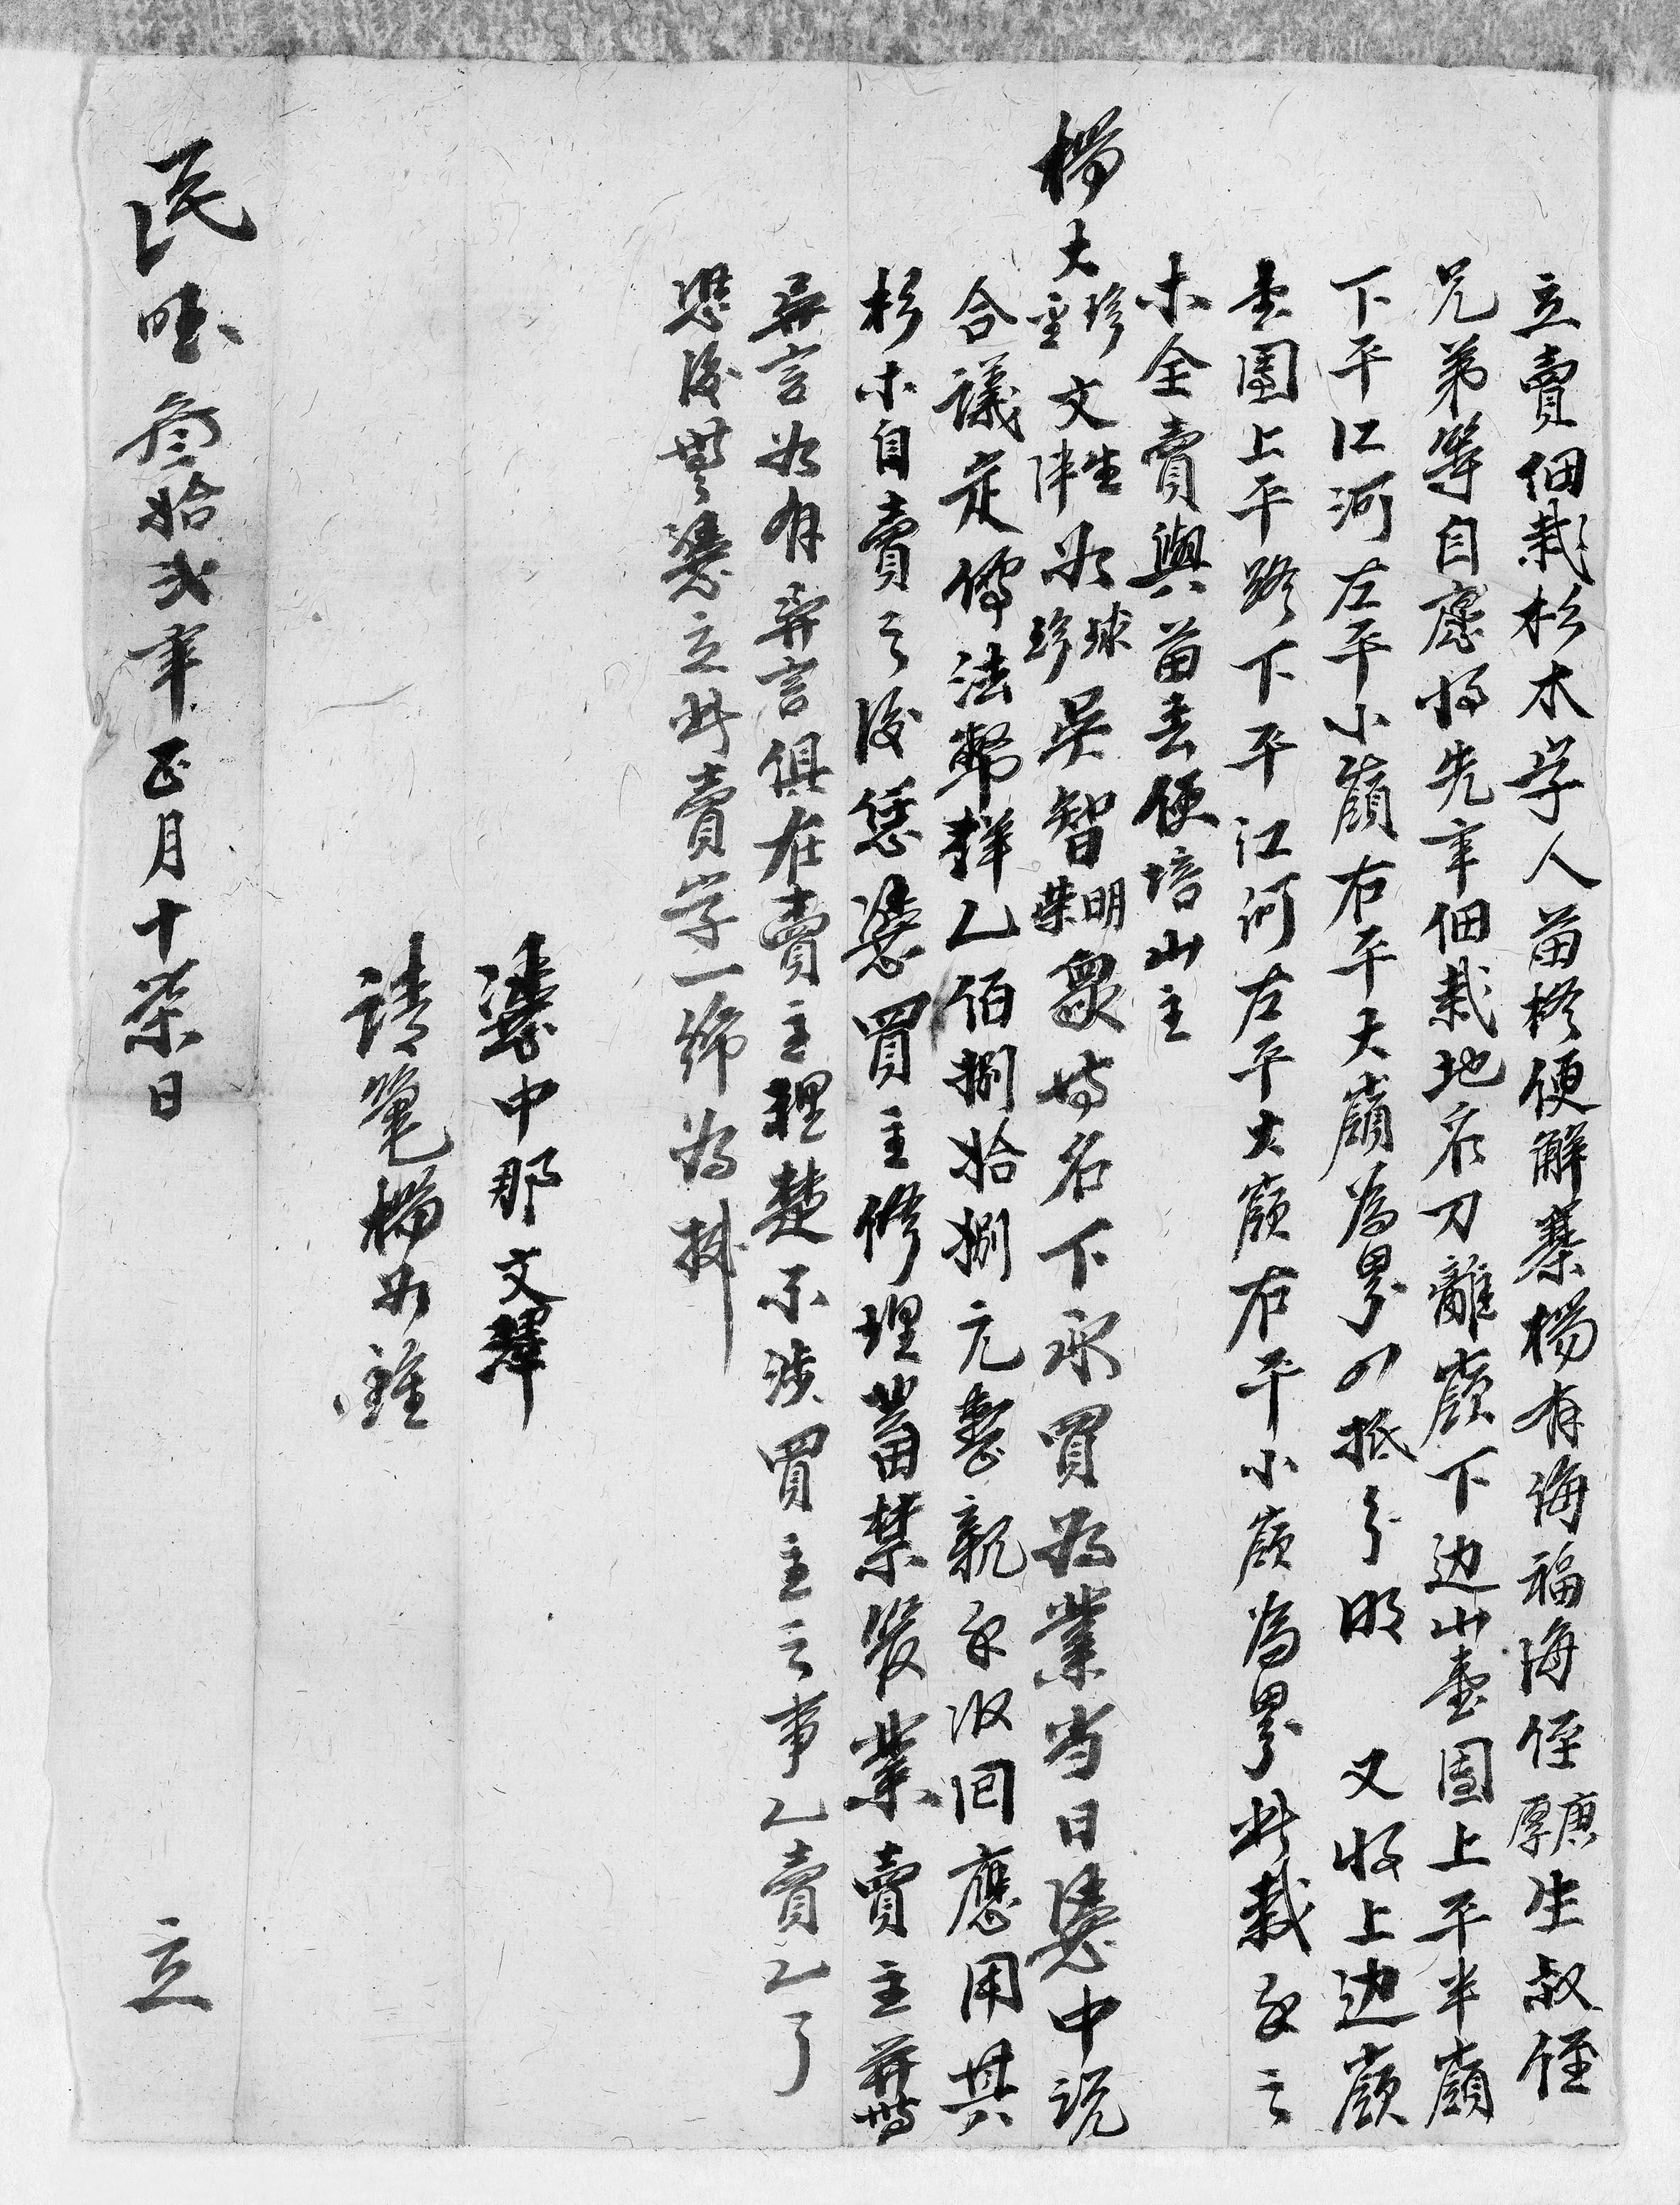 立賣佃栽杉木字人苗柊便解寨楊有海福海侄厚康生叔侄
兄弟等自愿將先年佃栽地名刀離嶺下边山壹團上平半嶺
下平江河左平小嶺右平大嶺為界四抵分明 又收上边嶺
壹團上平路下平江河左平大嶺右平小嶺為界此栽分之
木全賣與苗丟便培山主
楊大珍聖文生津如球珍吳智明榮眾等名下承買為業当日憑中説
合議定價法幣洋乙佰捌拾捌元整親手收回應用其
杉木自賣之後恁憑買主修理蓄禁管業賣主無得
異言如有異言俱在賣主理楚不涉買主之事乙賣乙了
恐後無憑立此賣字一紙為據
憑中那文澤
請筆楊如雄
民國叁拾弍年正月十柒日 立